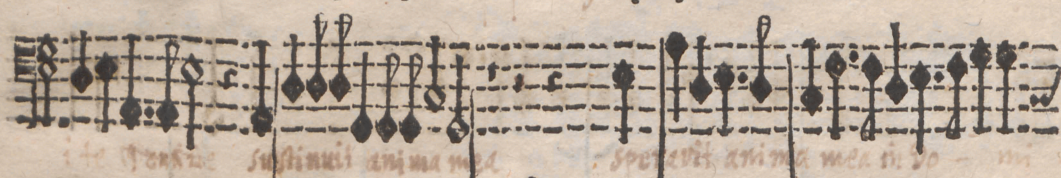 te sustinuit anima mea speravit anima mea in Do - mi